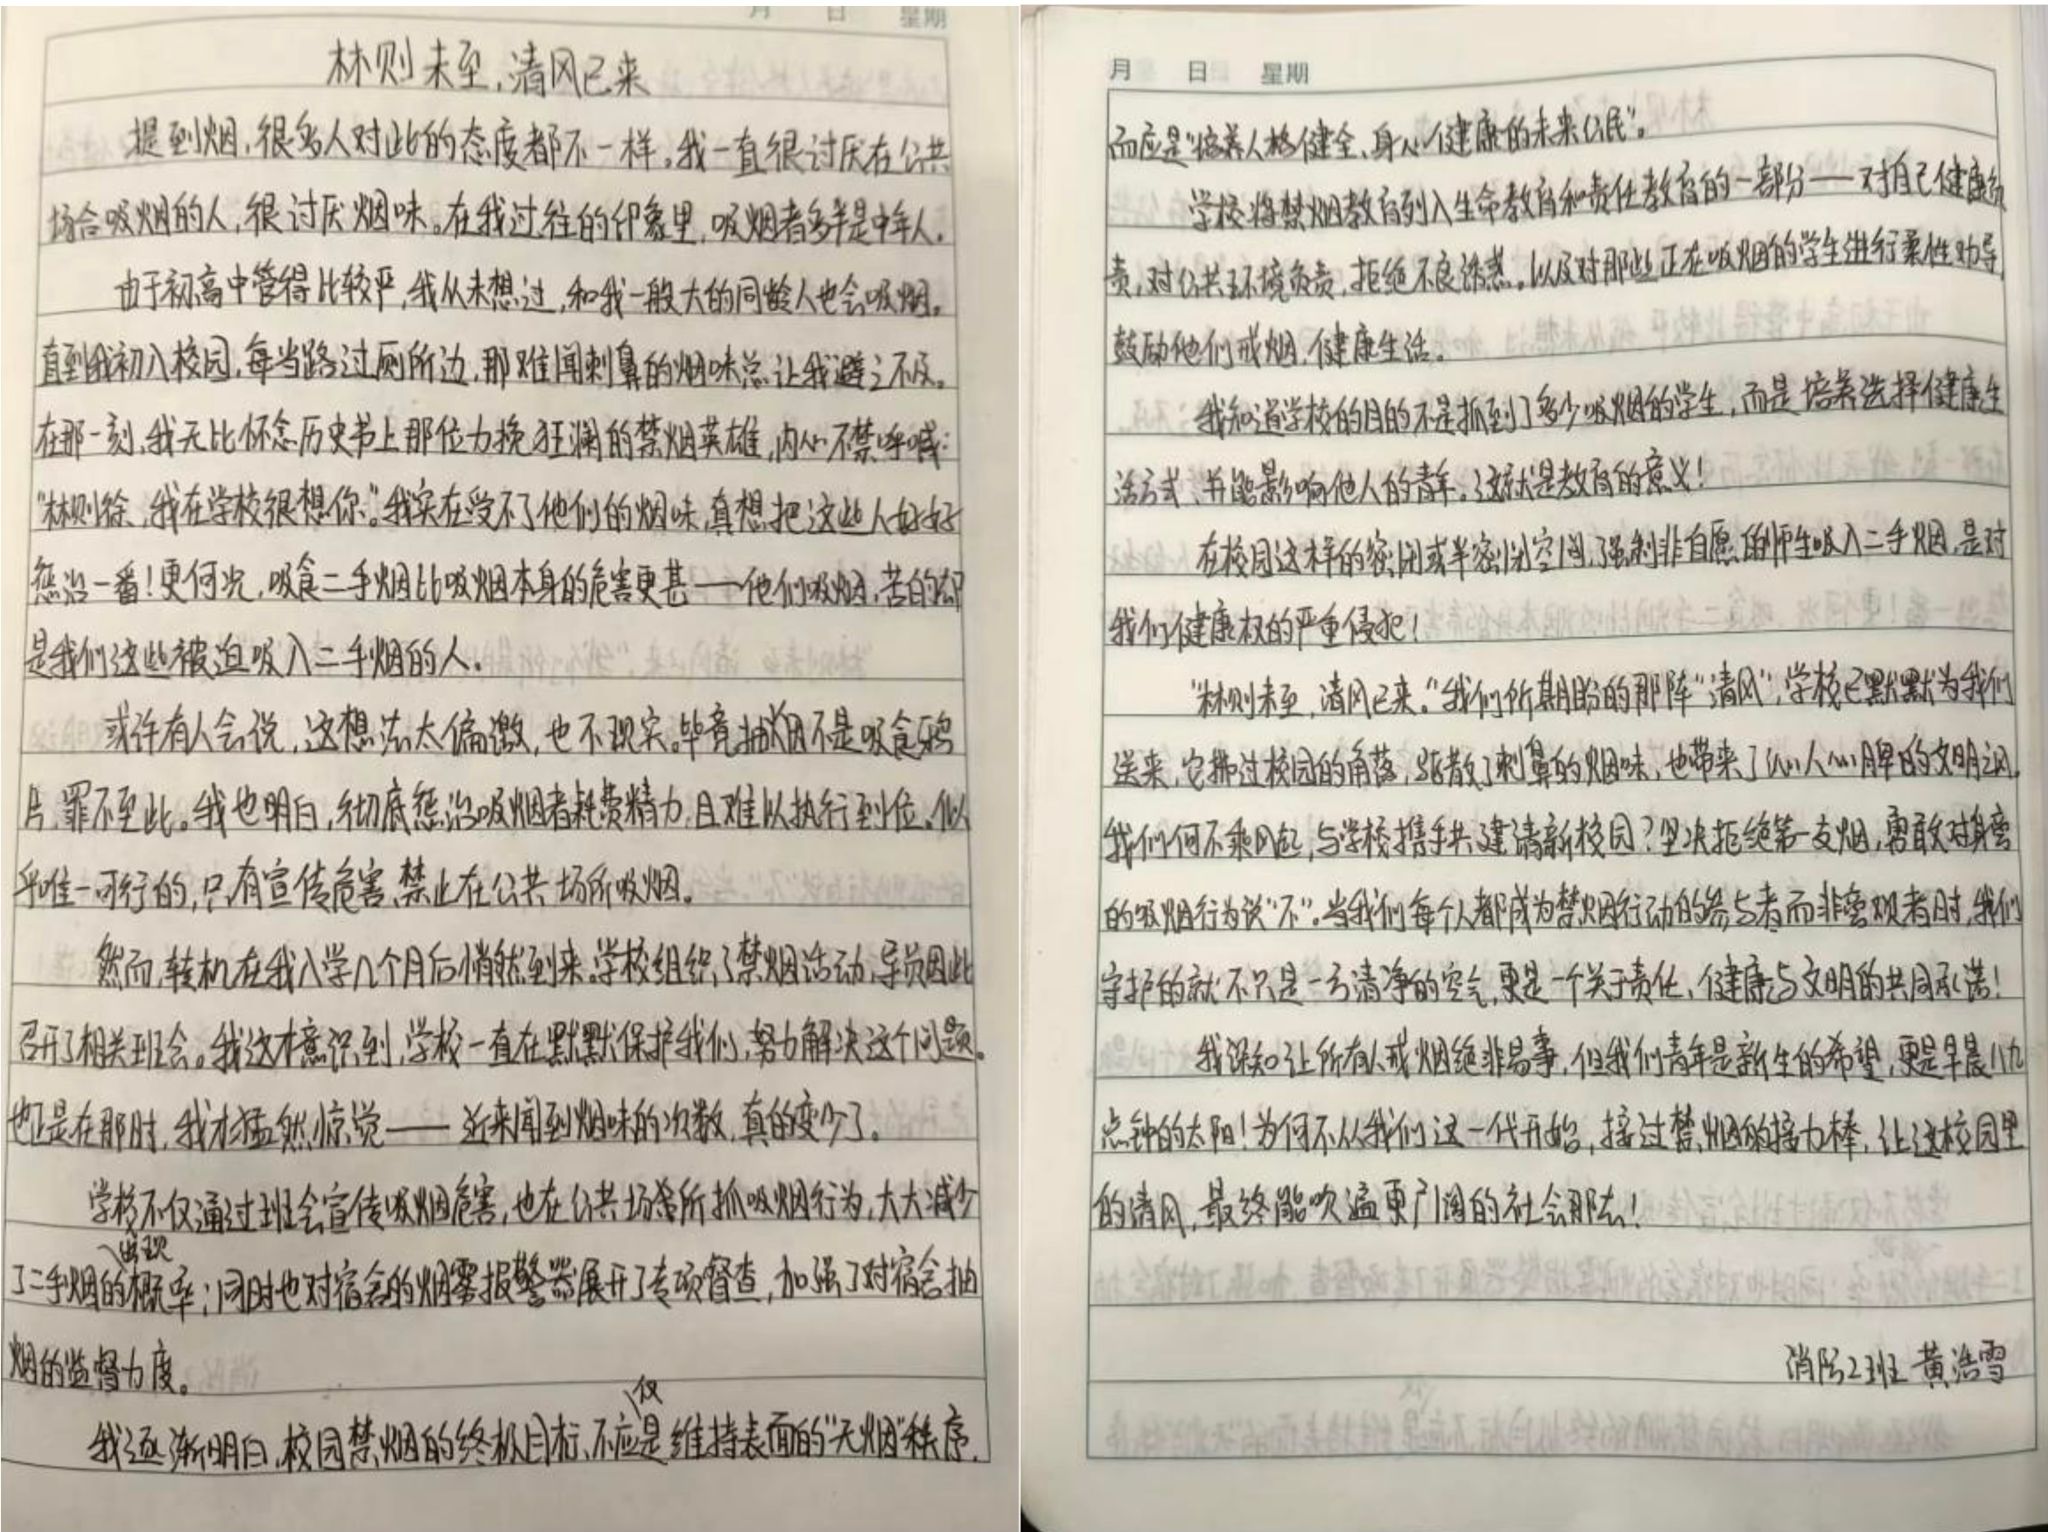 月 日 星期
林则未至,清风已来
提到烟,很多人对此的态度都不一样。我一直很讨厌在公共
场合吸烟的人,很讨厌烟味。在我过往的印象里,吸烟者多半是中年人。
由于初高中管得比较严,我从未想过,和我一般大的同龄人也会吸烟。
直到我初入校园,每当路过厕所边,那难闻刺鼻的烟味总让我避之不及。
在那一刻,我无比怀念历史书上那位力挽狂澜的禁烟英雄,内心不禁呼喊:
“林则徐,我在学校很想你。”我实在受不了他们的烟味,真想把这些人好好
惩治一番!更何况,吸食二手烟比吸烟本身的危害更甚——他们吸烟,苦的却
是我们这些被迫吸入二手烟的人。
或许有人会说,这想法太偏激,也不现实。毕竟抽烟不是吸食鸦
片,罪不至此。我也明白,彻底惩治吸烟者耗费精力,且难以执行到位。似
乎唯一可行的,只有宣传危害、禁止在公共场所吸烟。
然而,转机在我入学几个月后悄然到来。学校组织了禁烟活动,导员因此
召开了相关班会。我这才意识到,学校一直在默默保护我们,努力解决这个问题。
也正是在那时,我才猛然惊觉——近来闻到烟味的次数,真的变少了。
学校不仅通过班会宣传吸烟危害,也在公共场所抓吸烟行为,大大减少
了二手烟的出现概率;同时也对宿舍的烟雾报警器展开了专项督查,加强了对宿舍抽
烟的监督力度。
我逐渐明白,校园禁烟的终极目标,不应仅是维持表面的“无烟”秩序,
月 日 星期
而应是“培养人格健全、身心健康的未来公民”。
学校将禁烟教育列入生命教育和责任教育的一部分——对自己健康负
责,对公共环境负责,拒绝不良诱惑。以及对那些正在吸烟的学生进行柔性劝导,
鼓励他们戒烟,健康生活。
我知道学校的目的不是抓到了多少吸烟的学生,而是培养选择健康生
活方式、并能影响他人的青年。这就是教育的意义!
在校园这样的密闭或半密闭空间,强制非自愿的师生吸入二手烟,是对
我们健康权的严重侵犯!
“林则未至,清风已来。”我们所期盼的那阵“清风”,学校已默默为我们
送来,它拂过校园的角落,驱散了刺鼻的烟味,也带来了沁人心脾的文明之风。
我们何不乘风起,与学校携手共建清新校园?坚决拒绝第一支烟,勇敢对身旁
的吸烟行为说“不”。当我们每个人都成为禁烟行动的参与者而非旁观者时,我们
守护的就不只是一方清净的空气,更是一个关于责任、健康与文明的共同承诺!
我深知让所有人戒烟绝非易事,但我们青年是新生的希望,更是早晨八九
点钟的太阳!为何不从我们这一代开始,接过禁烟的接力棒,让这校园里
的清风,最终能吹遍更广阔的社会那去!
消防2班 黄浩雪